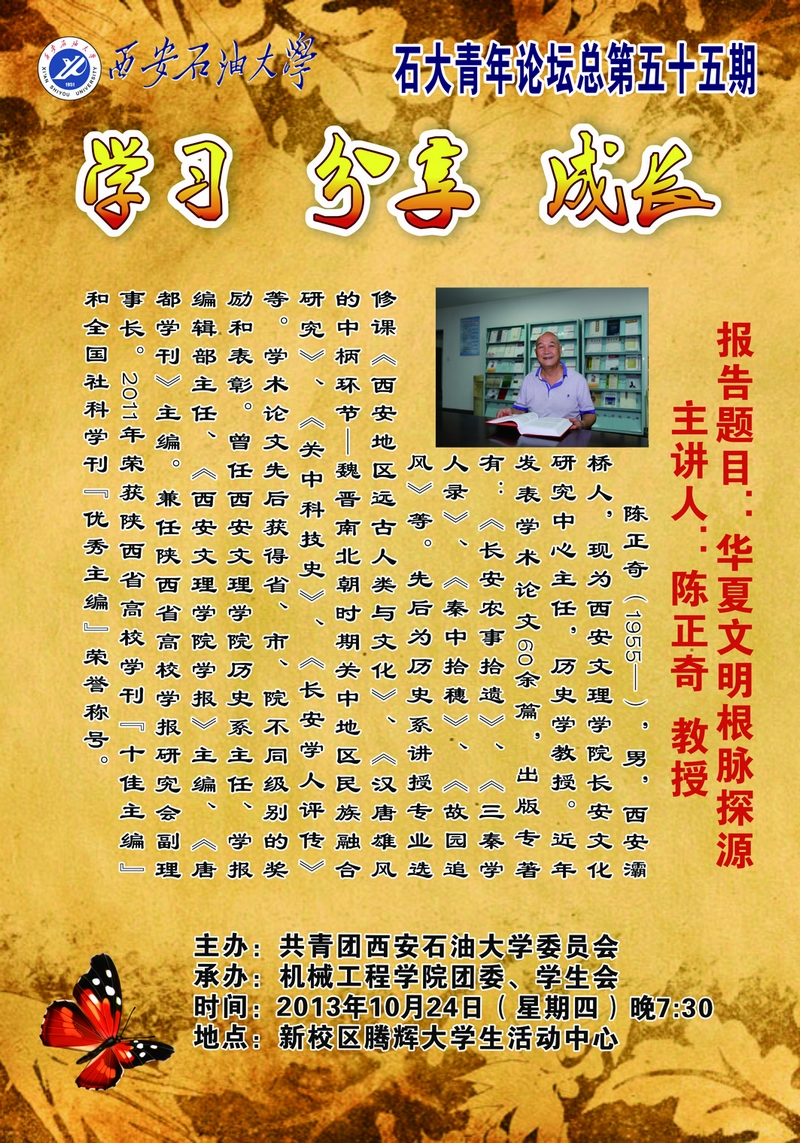 西安石油大学
XI'AN SHIYOU UNIVERSITY
西安石油大學
石大青年论坛总第五十五期
学习 分享 成长
报告题目：华夏文明根脉探源
主讲人：陈正奇 教授
陈正奇（1955——），男，西安灞
桥人，现为西安文理学院长安文化
研究中心主任，历史学教授。近年
发表学术论文60余篇，出版专著
有：《长安农事拾遗》、《三秦学
人录》、《秦中拾穗》、《故园追
风》等。先后为历史系讲授专业选
修课《西安地区远古人类与文化》、《汉唐雄风
的中柄环节—魏晋南北朝时期关中地区民族融合
研究》、《关中科技史》、《长安学人评传》
等。学术论文先后获得省、市、院不同级别的奖
励和表彰。曾任西安文理学院历史系主任、学报
编辑部主任、《西安文理学院学报》主编、《唐
都学刊》主编。兼任陕西省高校学报研究会副理
事长。2011年荣获陕西省高校学刊『十佳主编』
和全国社科学刊『优秀主编』荣誉称号。
主办：共青团西安石油大学委员会
承办：机械工程学院团委、学生会
时间：2013年10月24日（星期四）晚7:30
地点：新校区腾辉大学生活动中心